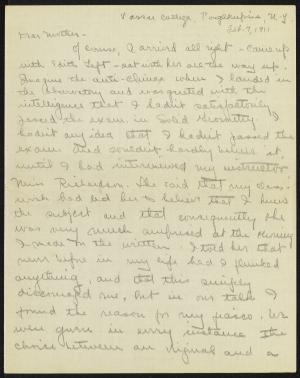 Vassar College, Poughkeepsie, N.Y.
Feb. 9, 1911
Dear Mother -
Of course, I arrived all right - came up
with Edith Taft - sat with her all the way up.
Imagine the anti-climax when I landed in
the laboratory and was greeted with the
intelligence that I hadn't satisfactorily
passed the exam. in Solid Geometry. I
hadn't any idea that I hadn't passed the
exam. and couldn't hardly believe it
until I had interviewed my instructor
Miss Richardson. She said that my class
work had led her to believe that I knew
the subject and that consequently she
was very much surprised at the showing
I made in the written. I told her that
never before in my life had I flunked
anything, and that this simply
discouraged me, but in our talk I
found the reason for my fiasco. We
were given in every instance the
choice between an original and a